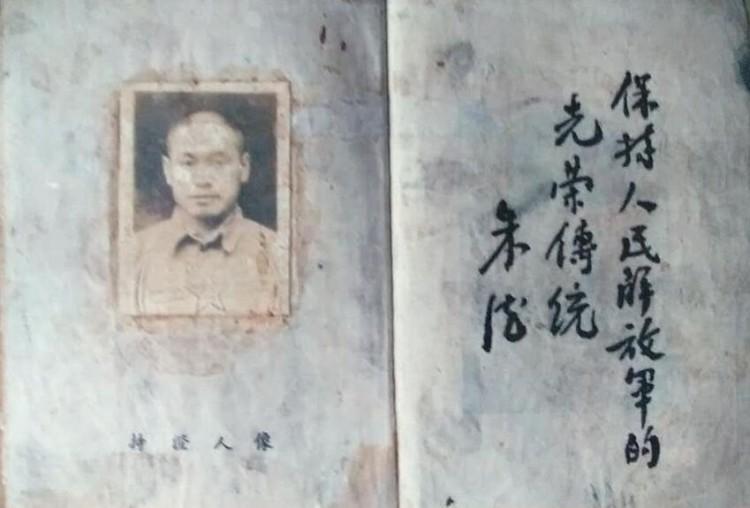 持證人像
保持人民解放軍的
光荣傳統
朱德